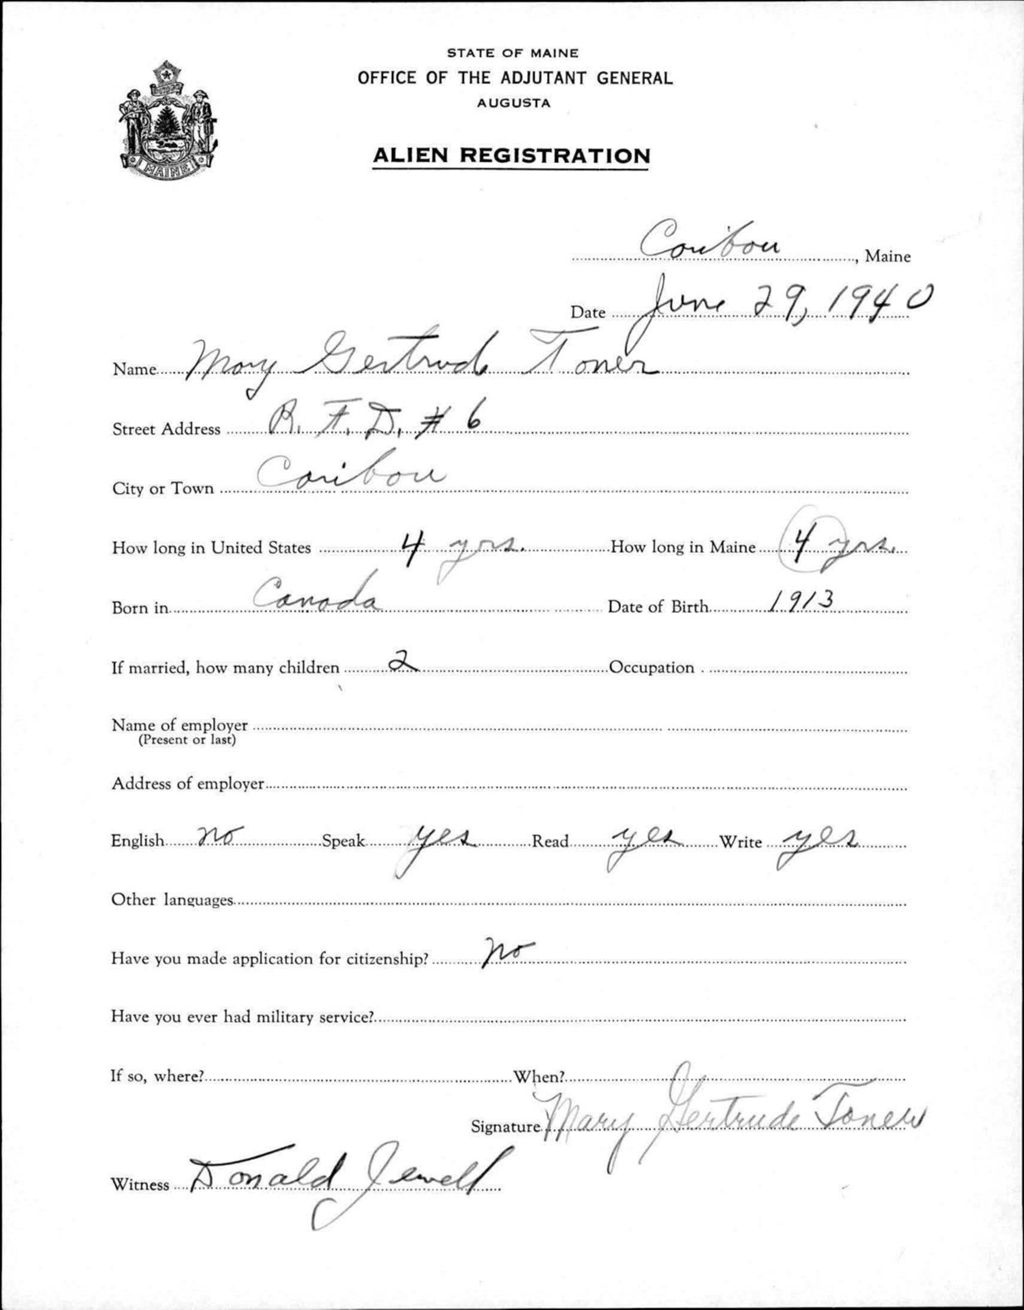 STATE OF MAINE
OFFICE OF THE ADJUTANT GENERAL
AUGUSTA
ALIEN REGISTRATION
MAINE
Caribou, Maine
Date June 29, 1940
Name Mary Gertrude Toner
Street Address R. F. D. # 6
City or Town Caribou
How long in United States 4 yrs. How long in Maine 4 yrs.
Born in Canada Date of Birth 1913
If married, how many children 2 Occupation
Name of employer
(Present or last)
Address of employer
English no Speak yes Read yes Write yes
Other languages
Have you made application for citizenship? no
Have you ever had military service?
If so, where? When?
Signature Mary Gertrude Toner
Witness Donald Jewell